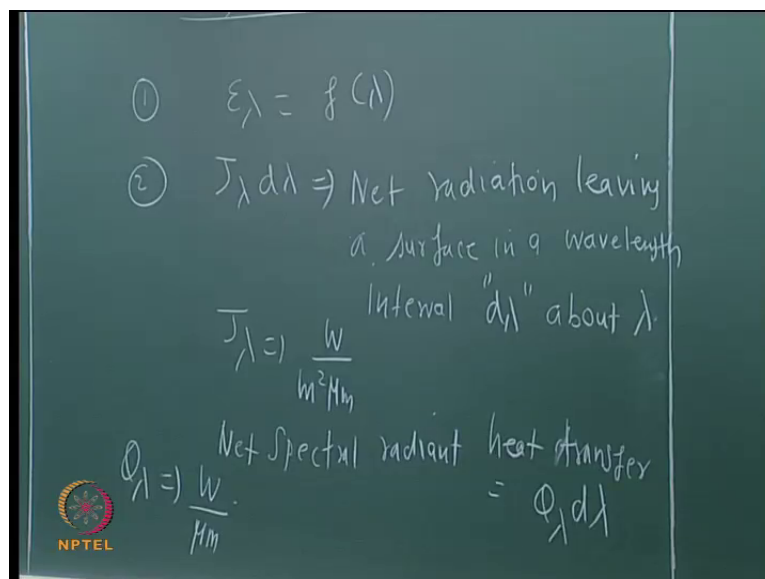 ① ελ = f(λ)
② Jλ dλ ⇒ Net radiation leaving
a surface in a wavelength
Interval "dλ" about λ.
Jλ ⇒ W / m² μm
Net Spectral radiant heat transfer
= Qλ dλ
Qλ ⇒ W / μm.
NPTEL